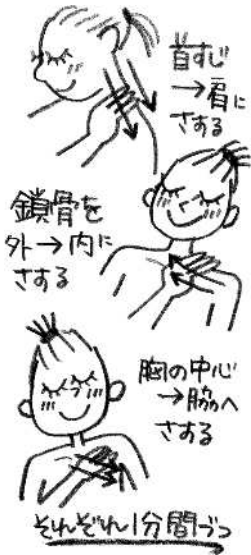 首すじ
→肩に
さする
鎖骨を
外→内に
さする
胸の中心
→脇へ
さする
それぞれ1分間づつ